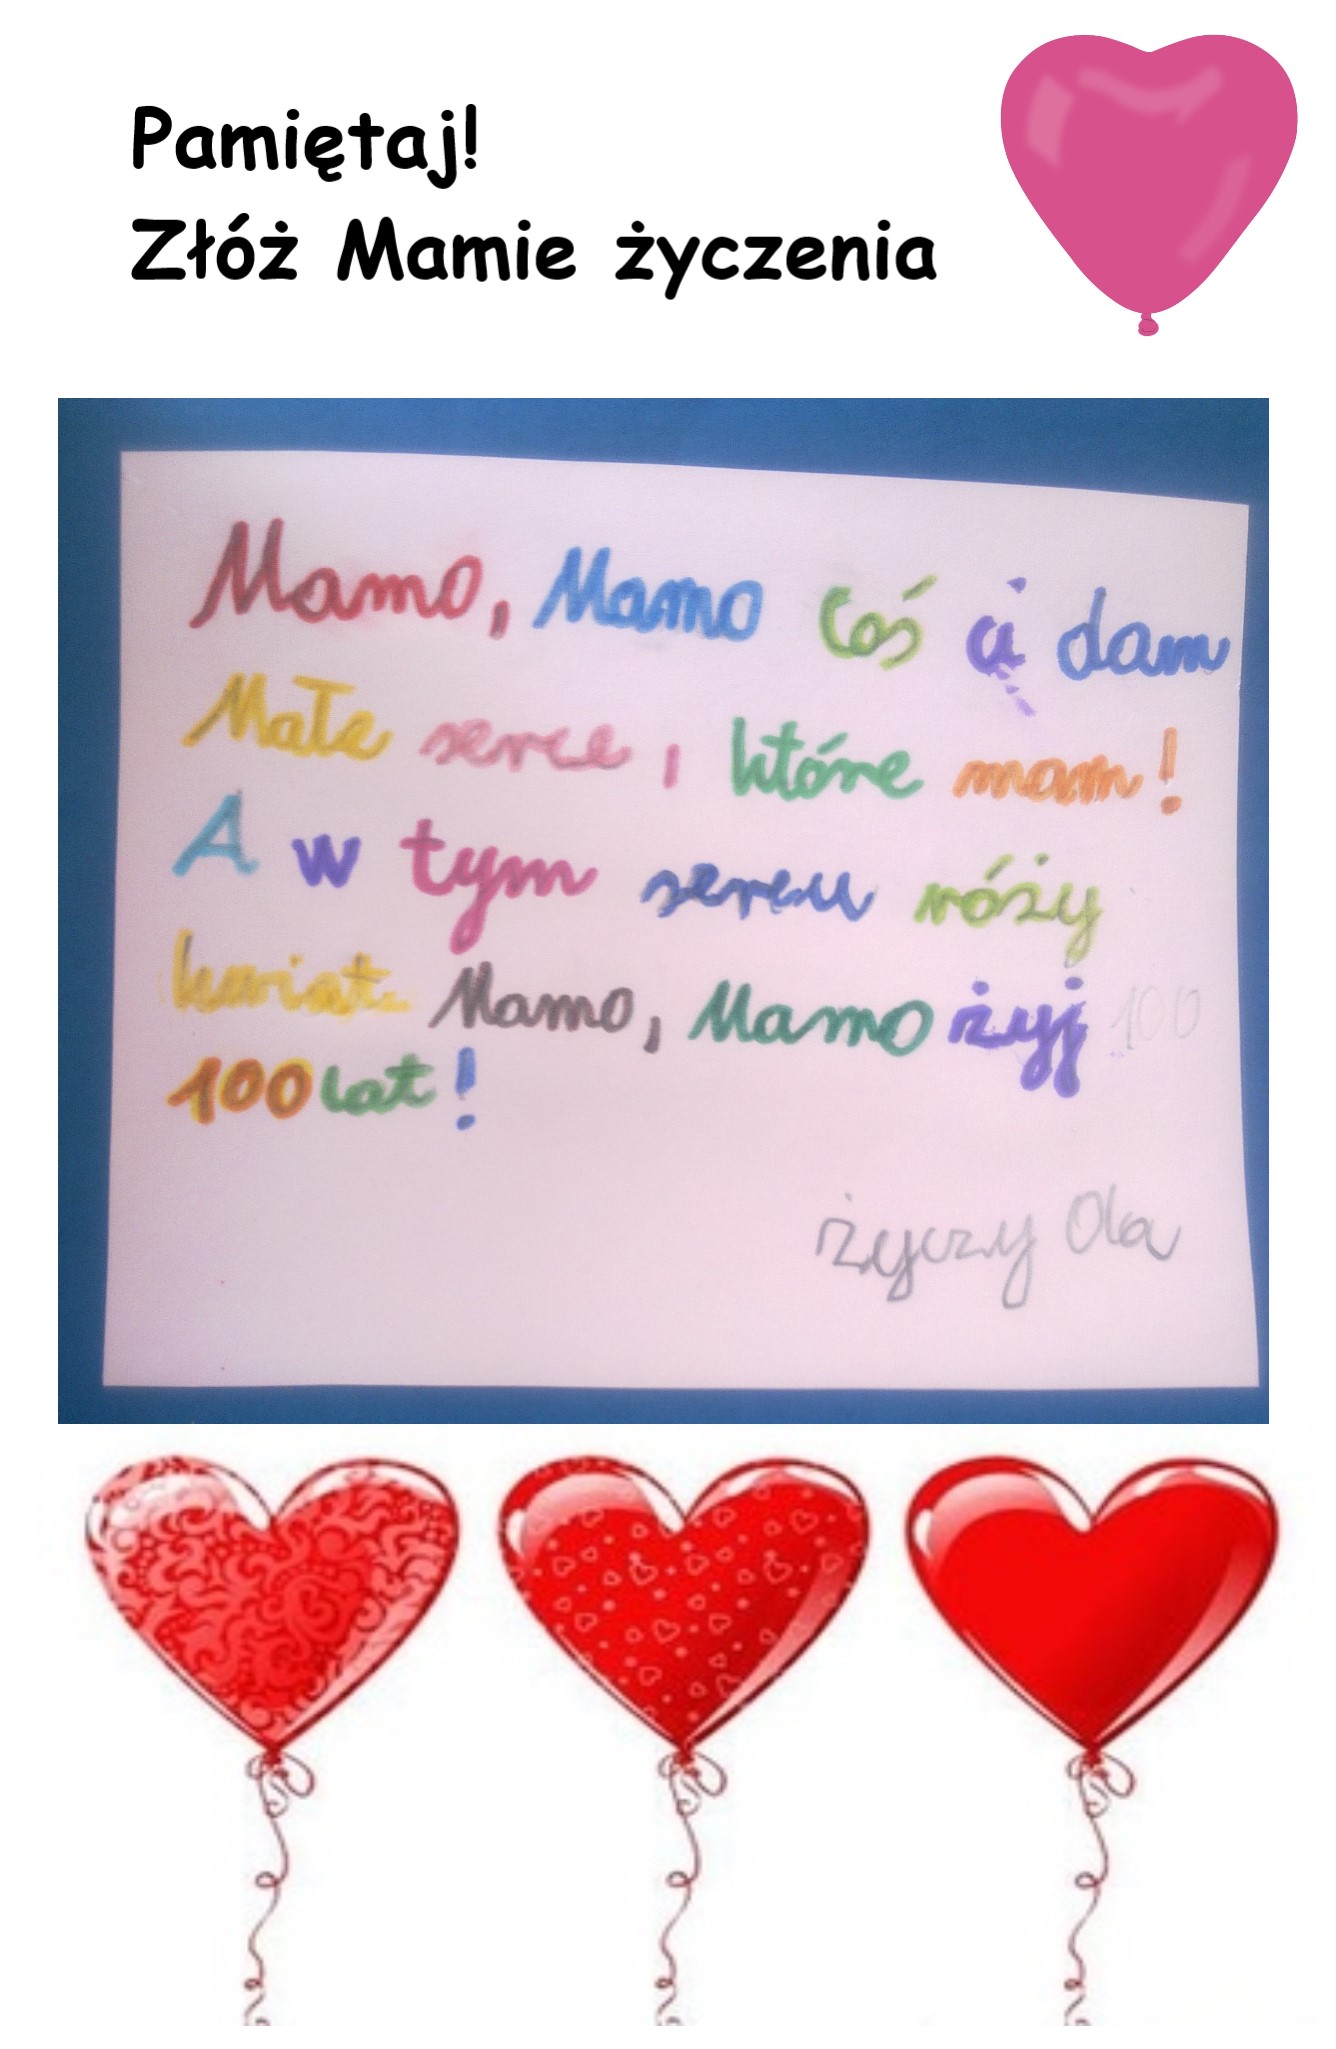 Pamiętaj!
Złóż Mamie życzenia
Mamo, Mamo Coś ci dam
Małe serce, które mam!
A w tym sercu róży
kwiat. Mamo, Mamo żyj 100
100 lat!
życzy Ola